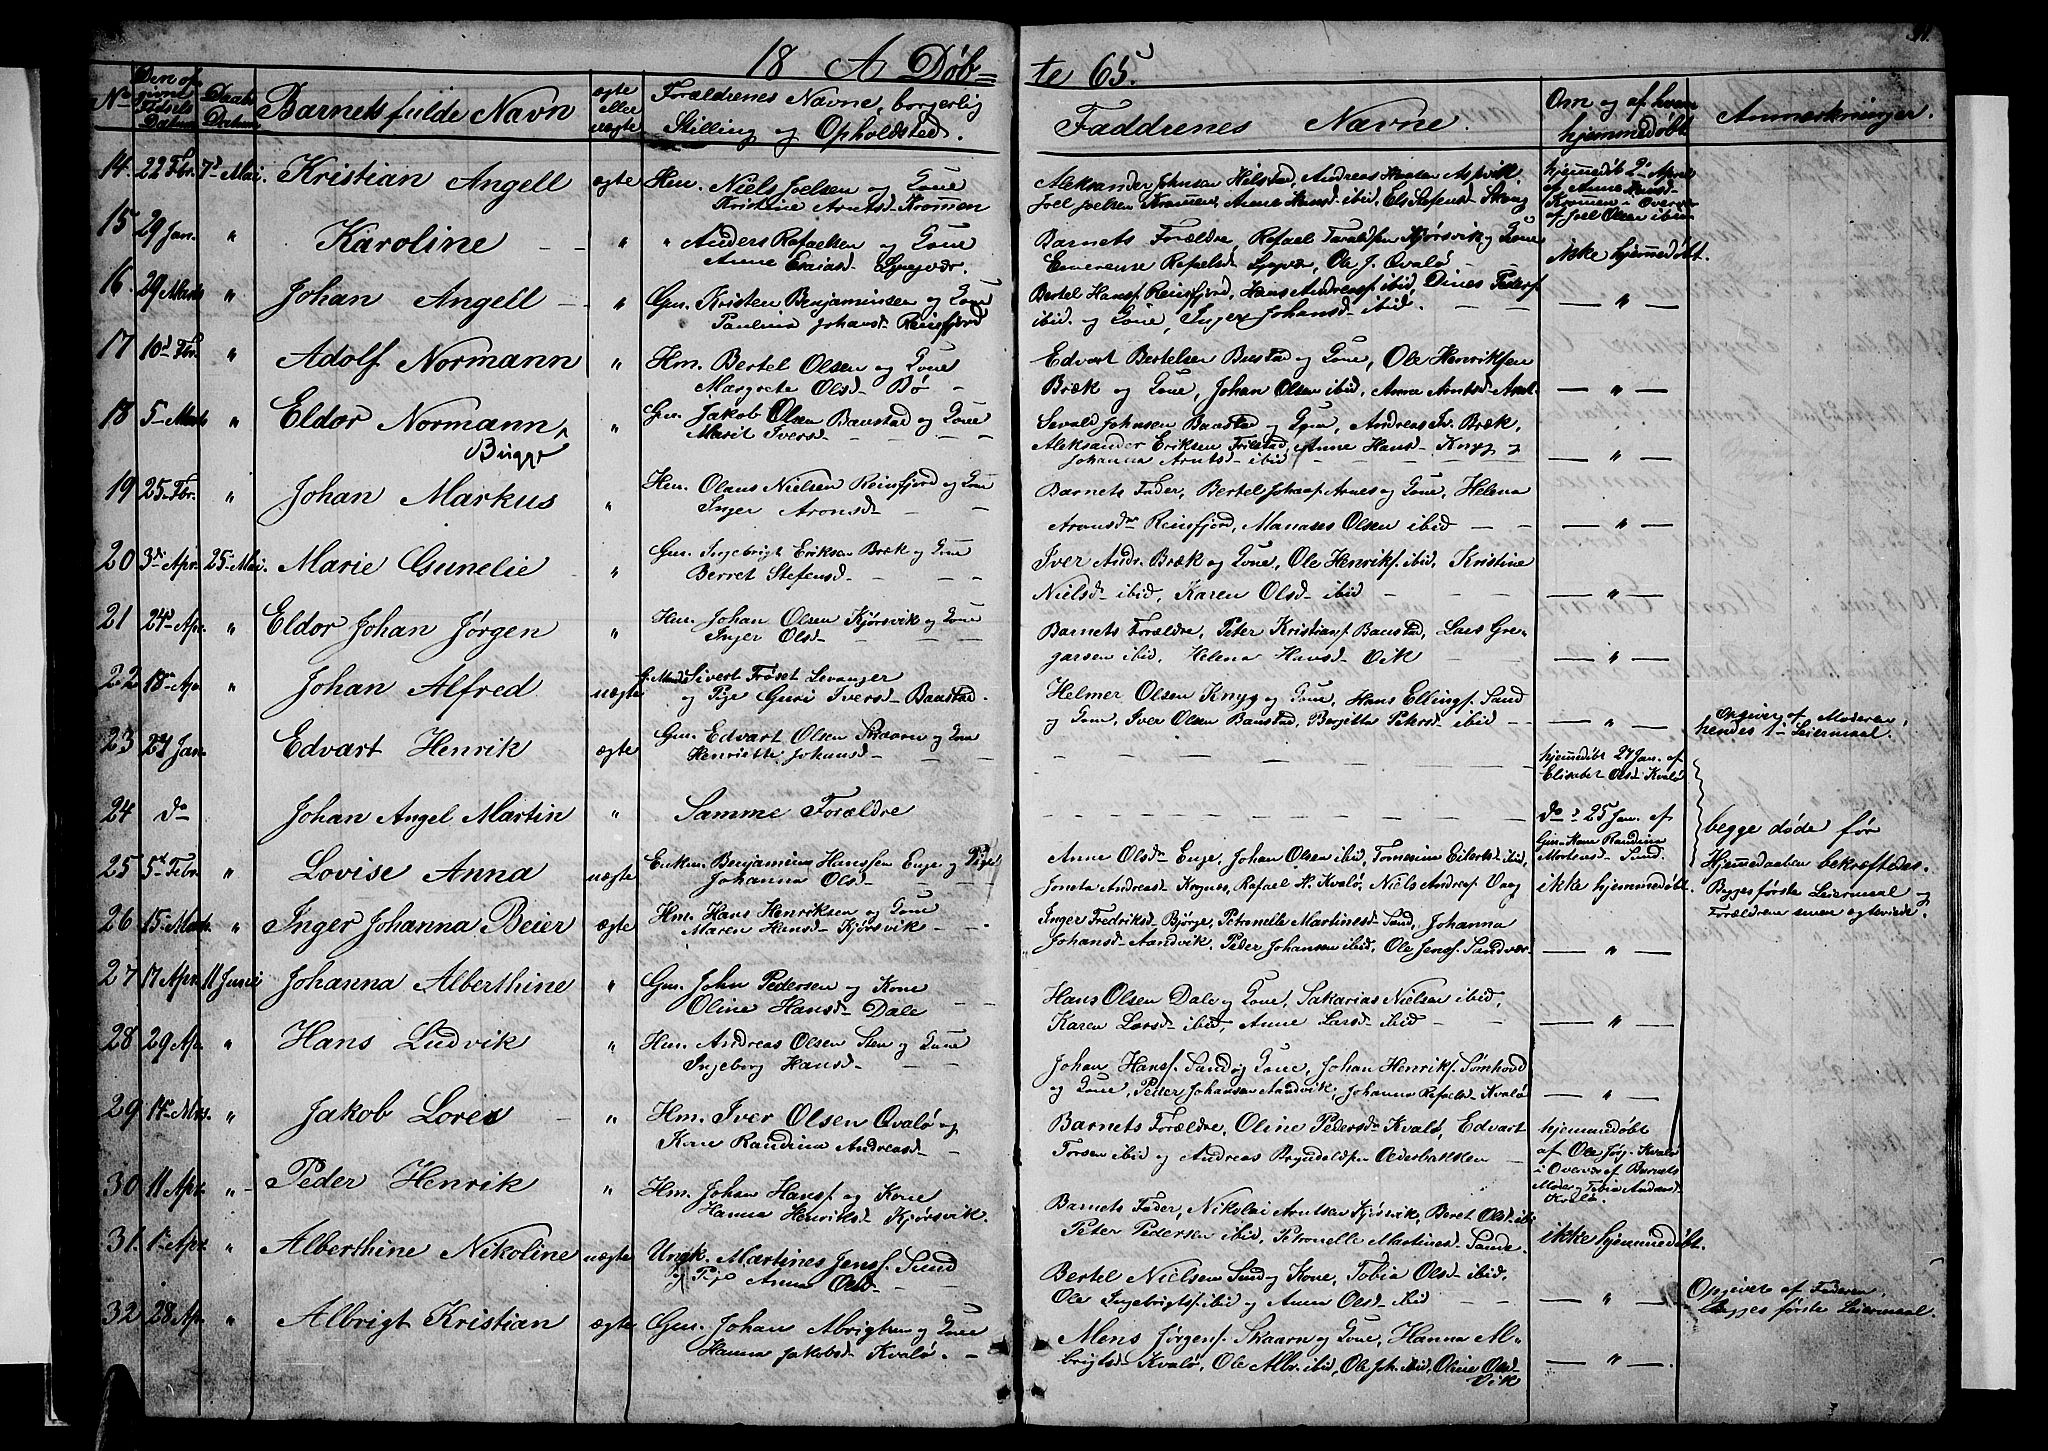 18 A Døb=
te 65.
No
Den opgivne Fødsels Datum
Daabs Datum
Barnets fulde Navn
ægte eller uægte
Forældrenes Navne, borgerlig
Stilling og Opholdsted.
Faddrenes Navne.
Om og af hvem
hjemmedøbt
Anmærkninger.
14. 22 Fbr. 7d Mai. Kristian Angell ægte Hm. Niels Joelsen og Kone
Kristine Arntsd- Kromen
Aleksander Johnsen Hilstad, Andreas Aspvik,
Joel Joelsen Kromen, Anne Hansd- ibid, Els Stefensd-
hjemmedøbt 2den April
af Anne Hansd-
Kromen i Overvær
af Joel Olsen ibid
15 29 Jan. " Karoline - " " Anders Rafaelsen og Kone
Anne Esaiasd-
Barnets Forældre, Rafael Kjørsvik og Kone
Rafaelsd- Ole J. Qvalø
ikke hjemmedøbt.
16. 29 Marts " Johan Angell - " Gm. Kristen Benjaminsen og Kone
Paulina Johansd- Reinsfjord
Bertel Hansf. Reinsfjord, Hans Andreasf. ibid, Dines Pedersf
ibid. og Kone, Inger Johansd- ibid.
— " —
17 10d Fbr. " Adolf Normann " Hm. Bertel Olsen og Kone
Margrete Olsd- Bø -
Edvart Bertelsen Bustad og Kone, Ole Henriksen
Bræk og Kone, Johan Olsen ibid, Anne Arntsd-
— " —
18 5- Marts " Eldor Normann
Bugge
" Gm. Jakob Olsen Baustad og Kone
Marit Iversd-
Sevald Johnsen Baustad og Kone, Andreas Bræk,
Aleksander Eriksen Anne Hansd- Knyg og
Johanna Arntsd- ibid
— " —
19 25- Fbr. " Johan Markus " Hm. Olaus Nielsen Reinsfjord og Kone
Inger Aronsd-
Barnets Fader, Bertel Arnes og Kone, Helena
Aronsd- Reinsfjord, Manases Olsen ibid
— " —
20 3di Apr. 25- Mai. Marie Gunelie " Gm. Ingebrigt Eriksen Bræk og Kone
Berret Stefensd-
Iver Andr. Bræk og Kone, Ole Henriksf. ibid, Kristine
Nielsd- ibid, Karen Olsd- ibid
— " —
21 24d Apr. " Eldor Johan Jørgen " Hm. Johan Olsen Kjørsvik og Kone
Inger Olsd-
Barnets Forældre, Peter Kristiansf. Baustad, Lars Gre-
garsen ibid, Helena Hansd- Vik
— " —
22 18- Ap. " Johan Alfred uægte Sivert Frøset Levanger
og Pige Guri Iversd- Baustad.
Helmer Olsen Knyg og Kone, Hans Ellingsf. Sund
og Kone, Iver Olsen Baustad, Bergitte Petersd- ibid
— " —
Opgivet af Moderen,
hendes 1ste Leiermaal.
23 24 Jan. Edvart Henrik ægte Gm. Edvart Olsen Skaarn og Kone
Henriette Johansd-
hjemmedøbt 24 Jan. af
Elisabet Olsd- Kvalø
24 do Johan Angel Martin " Samme Forældre
do 25 Jan. af
Gm. Kone Randina
Mortensd- Sund.
begge døde før
Hjemmedaaben bekræftedes.
25 5te Febr. " Lovise Anna uægte Enkem. Benjamin Hanssen Enge og Pige
Johanna Olsd-
Anne Olsd- Enge, Johan Olsen ibid, Tomesine Eilertsd- ibid,
Andreasd- Rafael H. Kvalø, Niels Andreasf. Vaag
ikke hjemmedøbt.
Begges første Leiermaal og
Forældrene senere ægteviede.
26 15- Marts " Inger Johanna Beier ægte Hm. Hans Henriksen og Kone
Maren Hansd- Kjørsvik
Inger Fredriksd- Bjørge, Petronelle Martinesd- Sund, Johanna
Johansd- Aandvik, Peder Johansen ibid, Ole Jensf.
— " —
27 17 Apr. 11 Juni Johanna Alberthine " Gm. John Pedersen og Kone
Oline Hansd- Dale
Hans Olsen Dale og Kone, Sakarias Nielsen ibid,
Karen Larsd- ibid, Anne Larsd- ibid
— " —
28 29 Ap. " Hans Ludvik " Hm. Andreas Olsen Sten og Kone
Ingeborg Hansd-
Johan Hansf. Sund og Kone, Johan Henriksf. Sømhovd
og Kone, Peder Johansen Aandvik, Johanna Rafaelsd- Kvalø
— " —
29 14- Mrs. " Jakob Lorins - " Hm. Iver Olsen Qvalø og
Kone Randina Andreasd-
Barnets Forældre, Oline Pedersd- Kvalø, Edvart
Torsen ibid og Andreas Olderbakken
hjemmedøbt
af Ole Jørg. Kvalø
i Overvær af Barnets
Moder og Tobia Andreasd-
Kvalø.
30 11 Apr. " Peder Henrik " Hm. Johan Hansf. og Kone
Hanna Henriksd- Kjørsvik.
Barnets Fader, Nikolai Arntsen Kjørsvik, Beret Olsd- ibid
Peter Pedersen ibid, Petronelle Martinesd- Sunde.
ikke hjemmedøbt.
31. 1ste Apr. " Alberthine Nikoline uægte Ungk. Martines Jensf. Sund
og Pige Anna Olsd-
Bertel Nielsen Sund og Kone, Tobia Olsd- ibid.
Ole Ingebrigtsf. ibid og Anna Olsd- ibid
— " —
Opgivet af Faderen,
Begges første Leiermaal.
32 28 Ap. " Albrigt Kristian ægte Gm. Johan Albrigtsen og Kone
Hanna Jakobsd- Kvalø.
Mens Jørgensf. Skaarn og Kone, Hanna Al-
brigtsd- Kvalø, Ole Albr. ibid, Ole Joh. ibid, Oline Olsd-
Vik
— " —